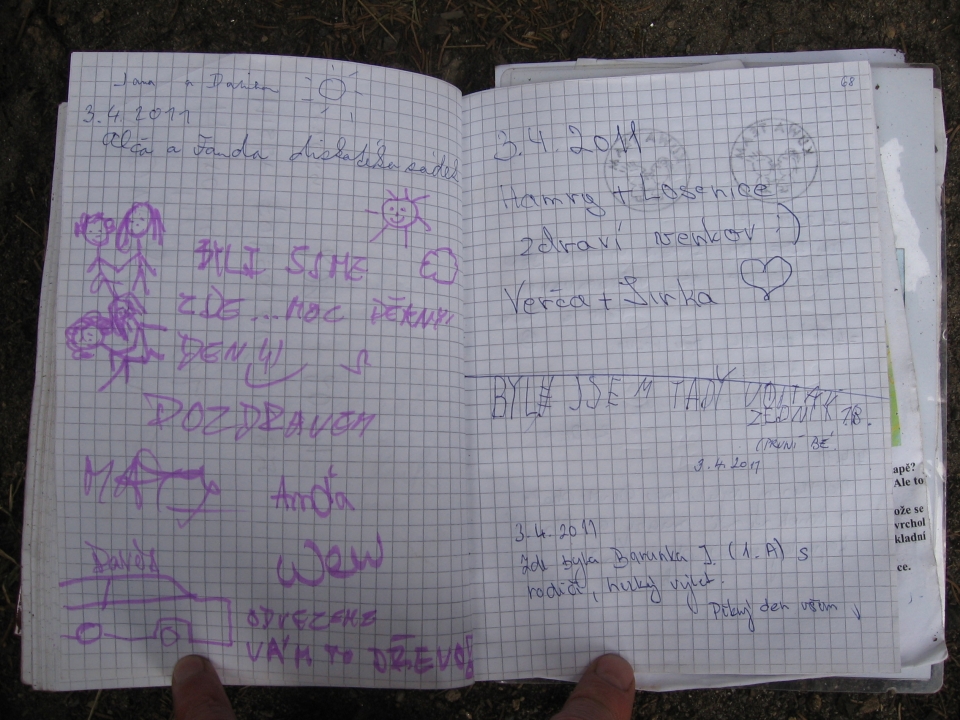 Jana a
3.4.2011
Alča a Fanda
BYLI SJME
ZDE ... MOC
DEN :)
POZDRAVEM
Anďa
Wew
David
ODVEZEME
VÁM TO DŘEVO!
68
3.4.2011
Hamry + Losenice
zdraví venkov :)
Verča + Jirka
BYLE JSEM TADY VOJTA K
ZEDNÍK 1B.
(PRVNÍ BÉ
3.4.2011
3.4. 2011
Zde byla Barunka J. (1.A) s
rodiči, hezký výlet.
Pěkný den všem
apě?
Ale to
ože se
vrchol
kladní
ce.